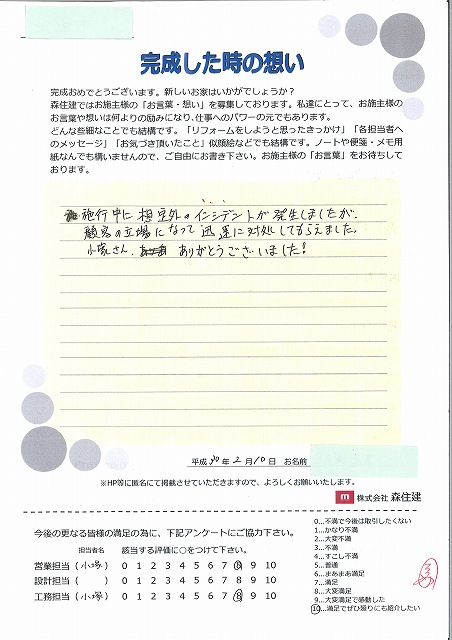 完成した時の想い
完成おめでとうございます。新しいお家はいかがでしょうか?
森住建ではお施主様の「お言葉・想い」を募集しております。私達にとって、お施主様の
お言葉や想いは何よりの励みになり、仕事へのパワーの元でもあります。
どんな些細なことでも結構です。「リフォームをしようと思ったきっかけ」「各担当者へ
のメッセージ」「お気づき頂いたこと」似顔絵などでも結構です。ノートや便箋・メモ用
紙なんでも構いませんので、ご自由にお書き下さい。お施主様の「お言葉」をお待ちして
おります。
施行中に想定外のインシデントが発生しましたが、
顧客の立場になって迅速に対処してもらえました。
小塚さん、ありがとうございました!
平成30年2月10日 お名前
※HP等に匿名にて掲載させていただきますので、よろしくお願いいたします。
m 株式会社 森住建
今後の更なる皆様の満足の為に、下記アンケートにご協力下さい。
担当者名 該当する評価に○をつけて下さい。
営業担当(小塚) 0 1 2 3 4 5 6 7 8 9 10
設計担当( ) 0 1 2 3 4 5 6 7 8 9 10
工務担当(小塚) 0 1 2 3 4 5 6 7 8 9 10
0…不満で今後は取引したくない
1…かなり不満
2…大変不満
3…不満
4…すこし不満
5…普通
6…まあまあ満足
7…満足
8…大変満足
9…大変満足で感動した
10…満足でぜひ周りにも紹介したい